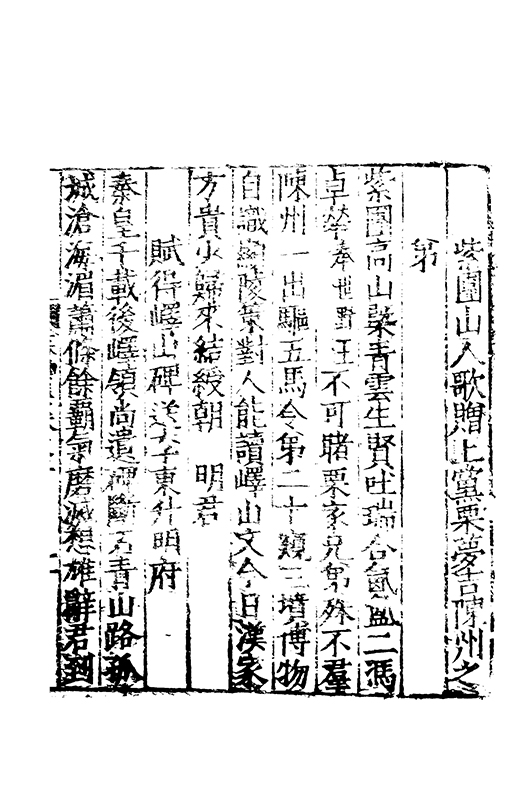 紫團山人歌贈上黨栗夢吉陳州之
弟
紫團高山槩青雲生賢吐瑞合氤氳二馮
卓犖奉世野王不可睹栗家兄弟殊不羣
陳州一出驅五馬令弟二十窺三墳博物
自識陵策對人能讀嶧山文今日漢家
方貴少歸來結綬朝 明君
賦得嶧山碑送子東升明府
秦皇千載後嶧領尚遺碑斷石青山路孤
城滄海湄蕭條餘霸氣磨滅想雄辭君到